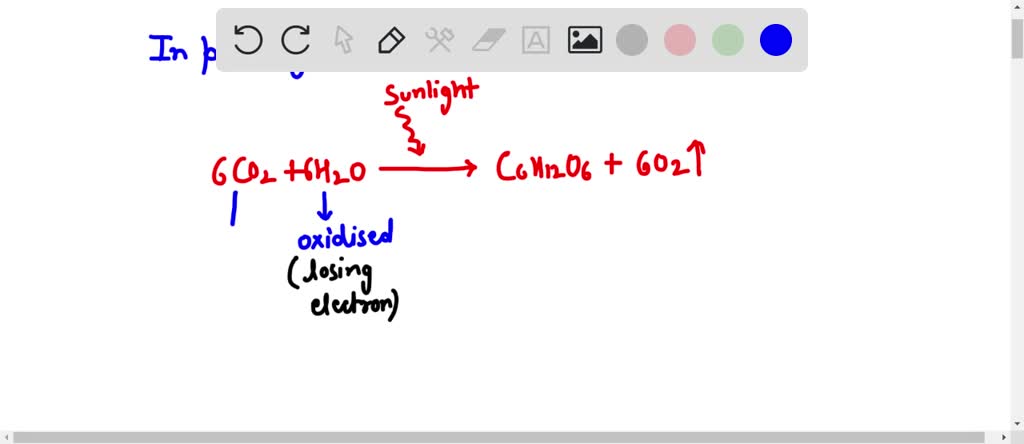 In p
Sunlight
6CO2 + 6H2O → C6H12O6 + 6O2↑
oxidised
(losing
electron)